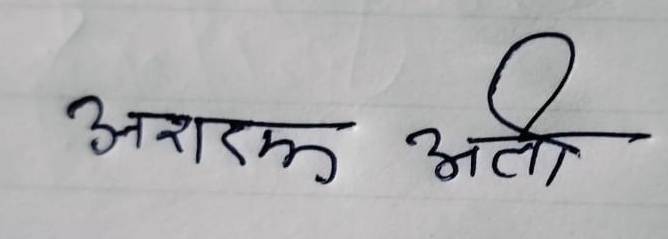 अशरफ अली